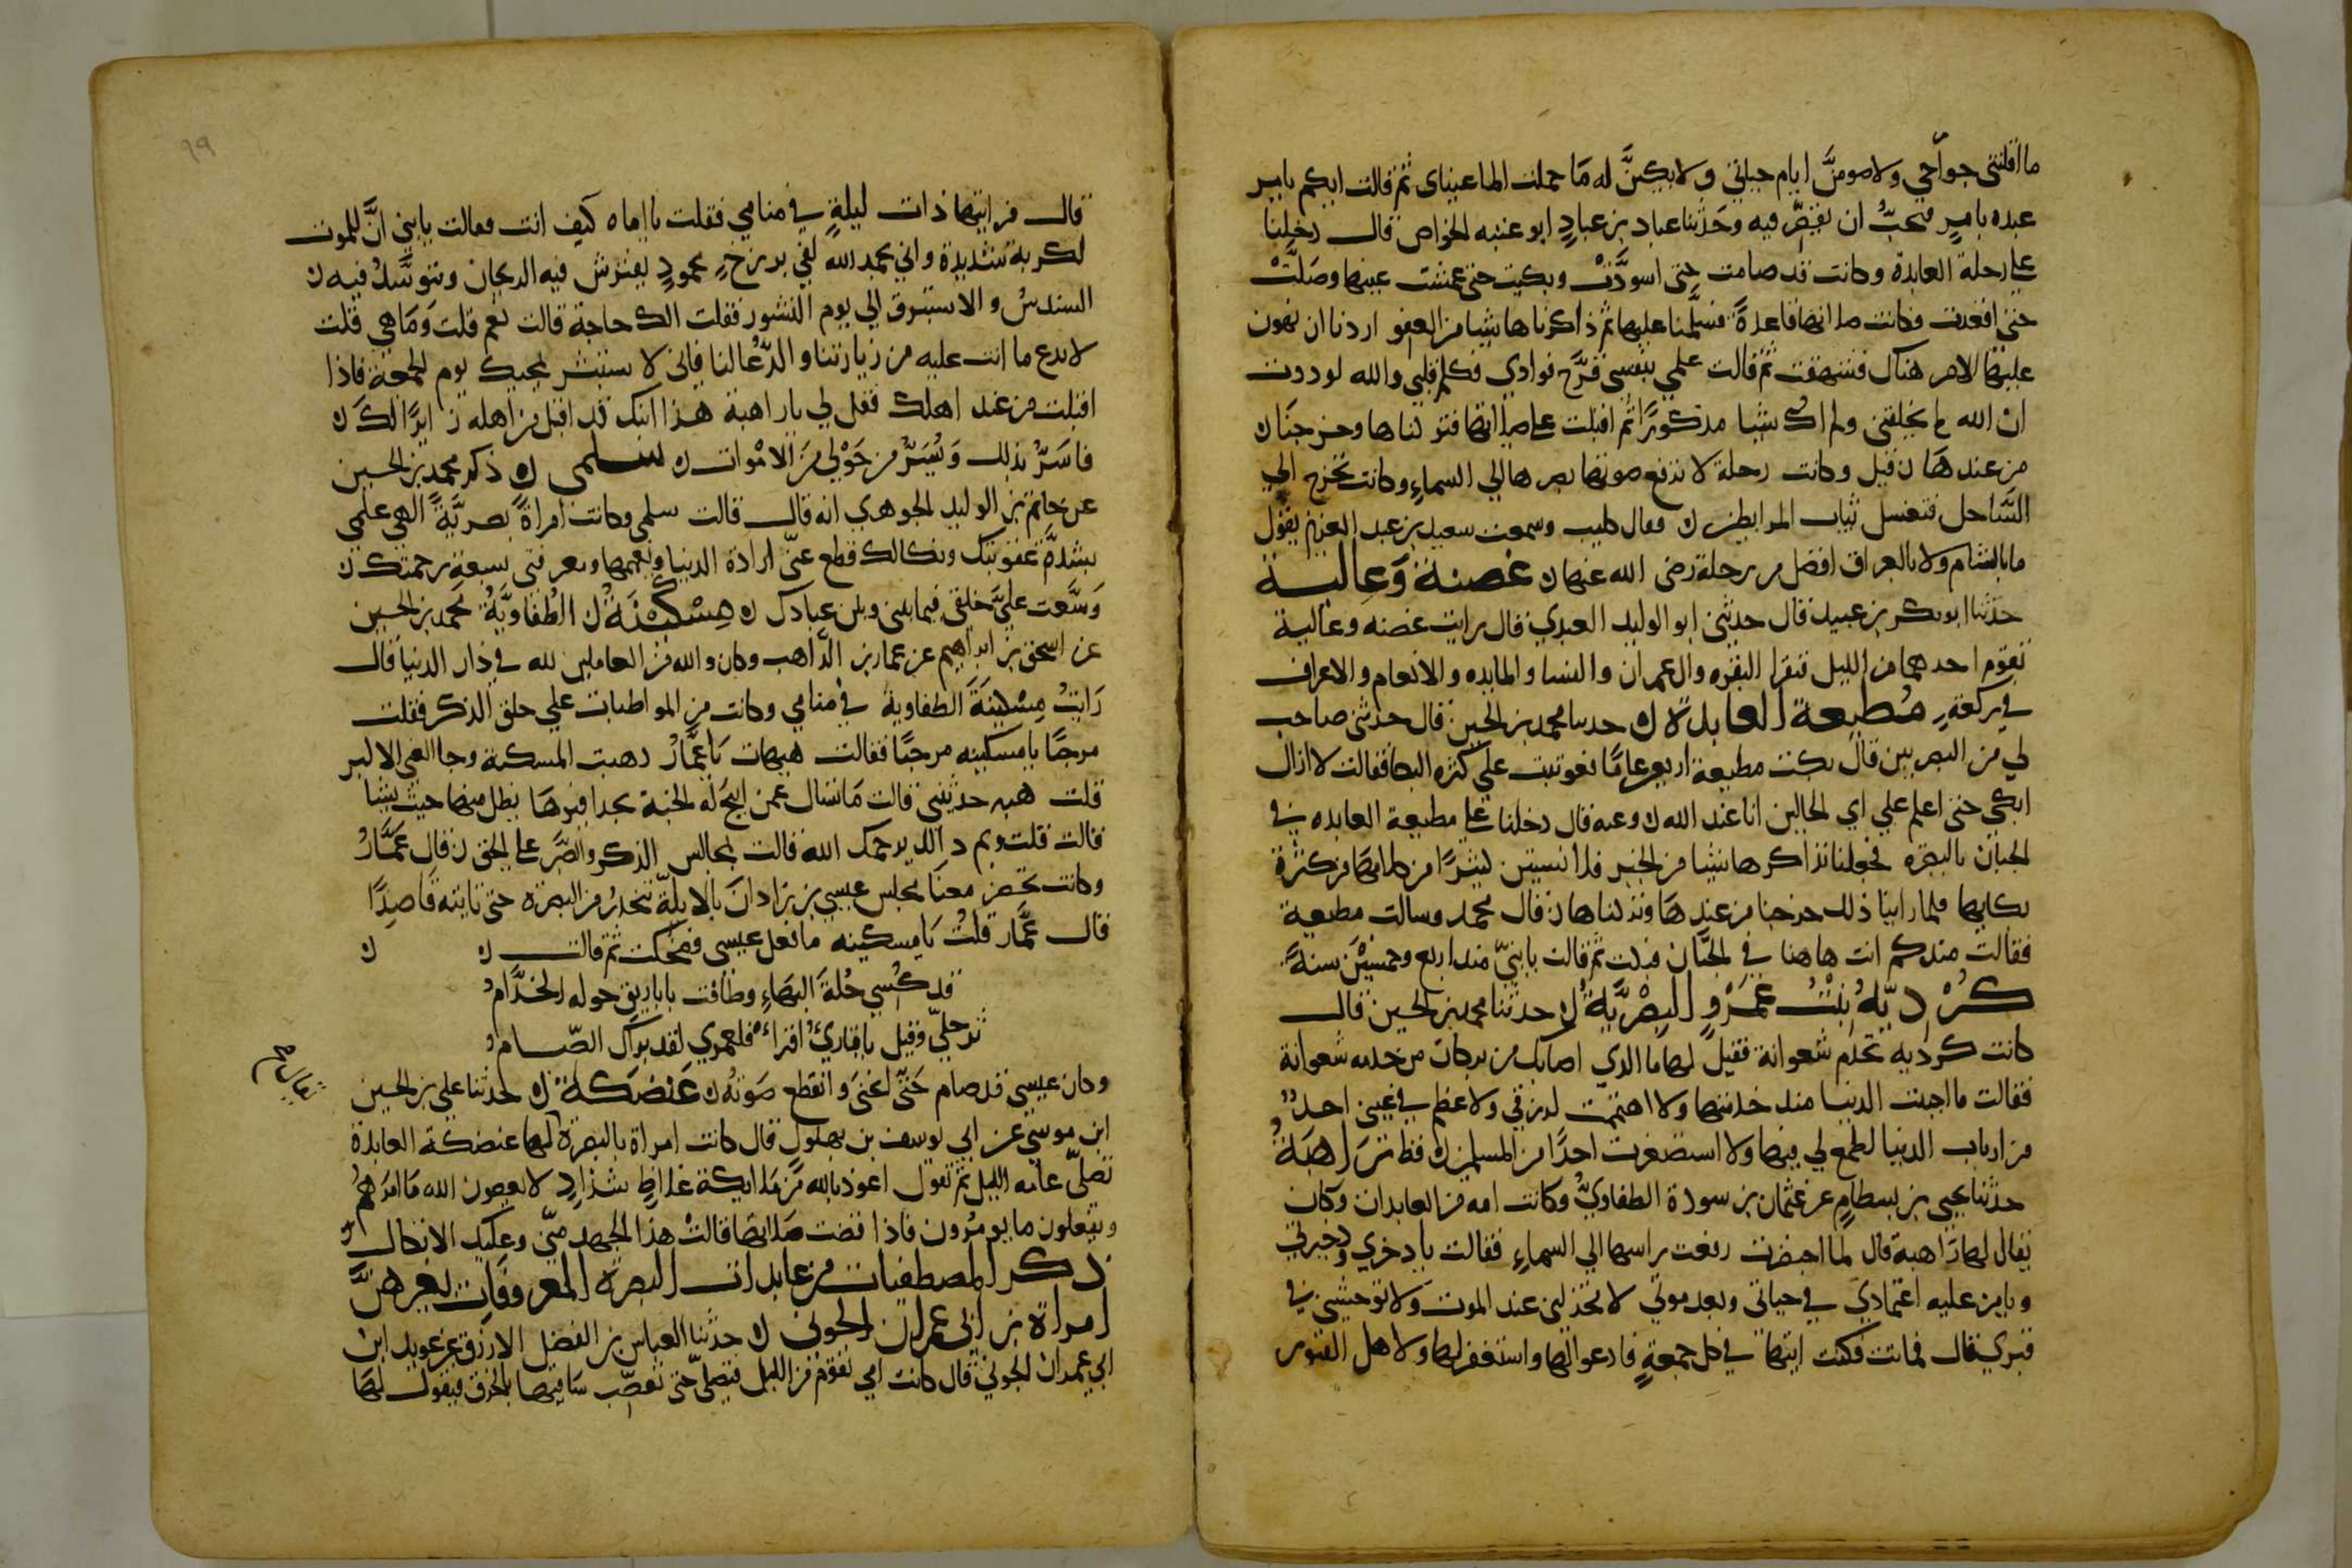 ما أقلتني جوارحي ولاصومنَّ ايام حياتي ولابكينَّ له مَا حملت الما عيناى ثم قالت ايكم يامر
عبده بامرٍ فيحبُّ ان يقصّر فيه وحَدثنا عباد بن عبادٍ ابو عتبه الخواص قال دخلنا
على رحلة العابدة وكانت قد صامت حتى اسودَّتْ وبكيت حتى عمشت عينها وصَلَّتْ
حتى اقعدت وكانت صلاتها قاعدةً فسلَّمنا عليها ثم ذاكرناها شيا من العفو اردنا ان نهون
عليها الامر هناك فشهقت ثم قالت علمي بنفسي قرَّح فوادي فكلم قلبي والله لوددت
ان الله لم يخلقني ولم اكُ شيا مذكورًا ثم اقبلت على صلاتها فتركناها وخرجنَا ن
من عندهَا ن قيل وكانت رحلة لا ترفع صوتها بصرها الي السماءِ وكانت تخرج الي
السَّاحل فتغسل ثياب المرابطين ن وقال وسمعت سعيد بن عبد العزيز يقول
ما بالشام ولا بالعراق افضل من رحلة رضى الله عنها ن غصنة وَعالية
حدثنا ابو بكر بن عبيد قال حدثني ابو الوليد العبدي قال رايت غصنه وعالية
تقوم احدهما من الليل فتقرا البقره وال عمران والنسا والمايده والانعام والاعراف
في ركعةٍ مُطيعة العابدة ن حدثنا محمد بن الحسين قال حدثني صاحب
لي من البصريين قال بكت مطيعة اربعين عامًا فعوتبت علي كثره البكا فقالت لا ازال
ابكي حتى اعلم علي اي الحالين انا عند الله ن وعنه قال دخلنا على مطيعة العابده في
الجبان بالبصره فجعلنا نذاكرها شيا من الخير فلا نستبين كثيرًا من كلامها من كثرة
بكايها فلما راينا ذلك خرجنا من عندهَا وتركناها ن قال محمد وسالت مطيعة
فقالت منذ كم انت هاهنا في الجبَّان فبكت ثم قالت يابنيّ منذ اربع وخمسيْن سنةً
كُرْديَّةُ بنْتُ عَمَرْوٍ البِصْريَّةُ ن حدثنا محمد بن الحسين قال
كانت كرديه تخدم شعوانة فقيل لها ما الذي اصابك من بركات من خدمه شعوانة
فقالت ما احببت الدنيا منذ خدمتها ولا اهتممت لرزقي ولا عظم في عيني احدٌ
من ارباب الدنيا لطمع لي فيها ولا استصغرت احدًا من المسلمين قط ن رَاهبَةُ
حدثنا يحيى بن بسطامٍ عن عثمان بن سودة الطفاويّ وكانت امه من العابدات وكان
يقال لها رَاهبة قال لما احتضرت رفعت راسها الي السماءِ فقالت يا ذخري وذخيرتي
ويا من عليه اعتمادي في حياتي وبعد موتي لا تخذلني عند الموت وَلا توحشني في
قبري قال فماتت فكنت اتيها في كل جمعةٍ فادعوا لها واستغفر لها ولاهل القبور
٩٩
قال فرايتها ذات ليلةٍ في منامي فقلت يا اماه كيف انت فقالت يابني انَّ للموت
لكربة شديدة واني بحمد الله لفي برزخٍ محمودٍ يفترش فيه الريحان ونتوسَّدُ فيه ن
السندسُ والاستبرق الي يوم النشور فقلت الك حاجة قالت نعم قلت وَمَا هي قالت
لا تدع ما انت عليه من زيارتنا والدّعا لنا فاني لاستبشر بمجيك يوم الجمعة فاذا
اقبلت من عند اهلك فقيل لي يا راهبة هذا ابنك قد اقبل من اهله زايرًا لك ن
فاسَرُّ بذلك وَيُسَرُّ من حَوْلي مَن الامْوات ن سلمى ن ذكر محمد بن الحسين
عن حاتم بن الوليد الجوهري انه قال قالت سلمى وكانت امراةً بصريَّةً الهي علمي
بشدَّة عقوبتك ونكالك قطع عنيّ ارادة الدنيا ونعيمها ومعرفتي بسعة رحمتك ن
وَسَّعت عليَّ خلقي فيما بيني وبين عبادك ن مِسْكيْنَةُ ن الطُفَاويَّةُ محمد بن الحسين
عن اسحق بن ابراهيم عن عمار بن الرّاهب وكان والله من العاملين لله في دار الدنيا قال
رَايتُ مِسْكينَةَ الطفاوية في منامي وكانت من المواظبات علي حلق الذكر فقلت
مرحبًا يا مسكينه مرحبًا فقالت هيهات يَا عمَّارُ ذهبت المسكنة وجا الغنى الاكبر
قلت هيه حدثيني قالت مَا تسال عمن ابيحَ له الجنة بحذافيرهَا يظل منها حيث يشا
قالت قلت وبم ذاك يرحمك الله قالت بمجالس الذكر والصَّبر على الحق ن قال عَمَّارُ
وكانت تحضر معنَا مجلس عيسي بن زاذان بالابلّة تنحدرُ من البصرة حتى تاتيه قاصدًا
قال عمَّار قلتُ يَا مسكينه ما فعل عيسى فضحكت ثم قالت ن ن
قد كُسي حُلةَ البهَاءِ وطافت باباريق حوله الخدَّامُ
ثم حلّي وقيل ياقاريُ اقراءْ فلعمري لقد براك الصّيامُ
وكان عيسى قد صام حَتَّى انحنىَ وانقطع صَوْتُه ن عَنضَكة ن حدثنا علي بن الحسين
ابن موسَى عن ابي يوسف بن بهلول قال كانت امراة بالبصرة لها عنضكة العابدة
تصلّي عامه الليل ثم تقول اعوذ بالله مَّن مَلايكة غلاظٍ شدَادٍ لا يعصون الله مَا امرَهُمُ
ويفعلون ما يومرُون فاذا قضت صَلاتها قالتْ هذا الجهد منّي وعليك الاتكال
ذكر المصطفيات من عابدات البصرة المعروفَات بغيرهنَّ
امراة بن ابي عمران الجوني ن حدثنا العباس بن الفضل الازرق عن عويد ابن
ابي عمران الجوني قال كانت امي تقوم من الليل فتصلّي حتى تعصّب سَاقيها بالخرق فيقول لهَا